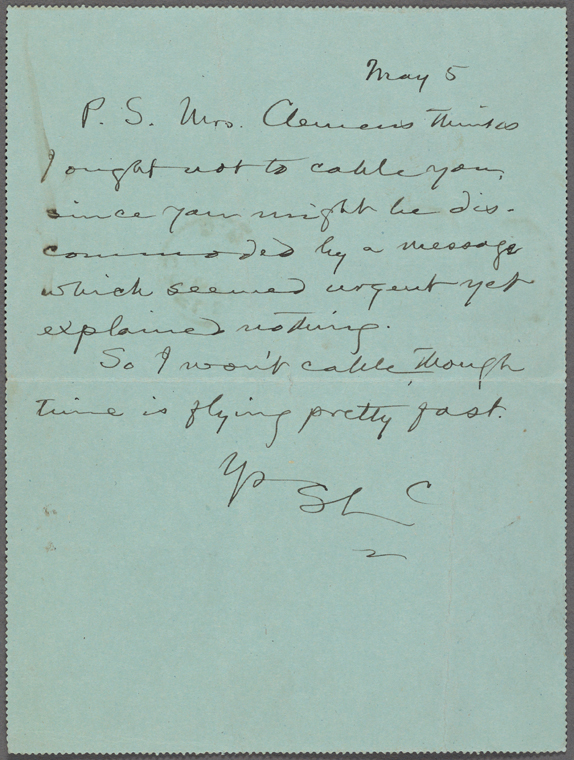 May 5
P. S. Mrs. Clemens thinks
I ought not to cable you,
since you might be dis-
commoded by a message
which seemed urgent yet
explained nothing.
So I won't cable, though
time is flying pretty fast.
Ys
SLC